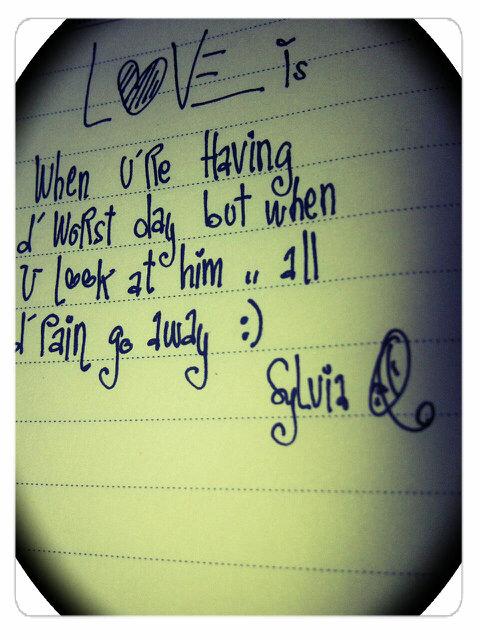 LOVE is
When U're Having
d' worst day but when
U look at him .. all
d' Pain go away :)
Sylvia